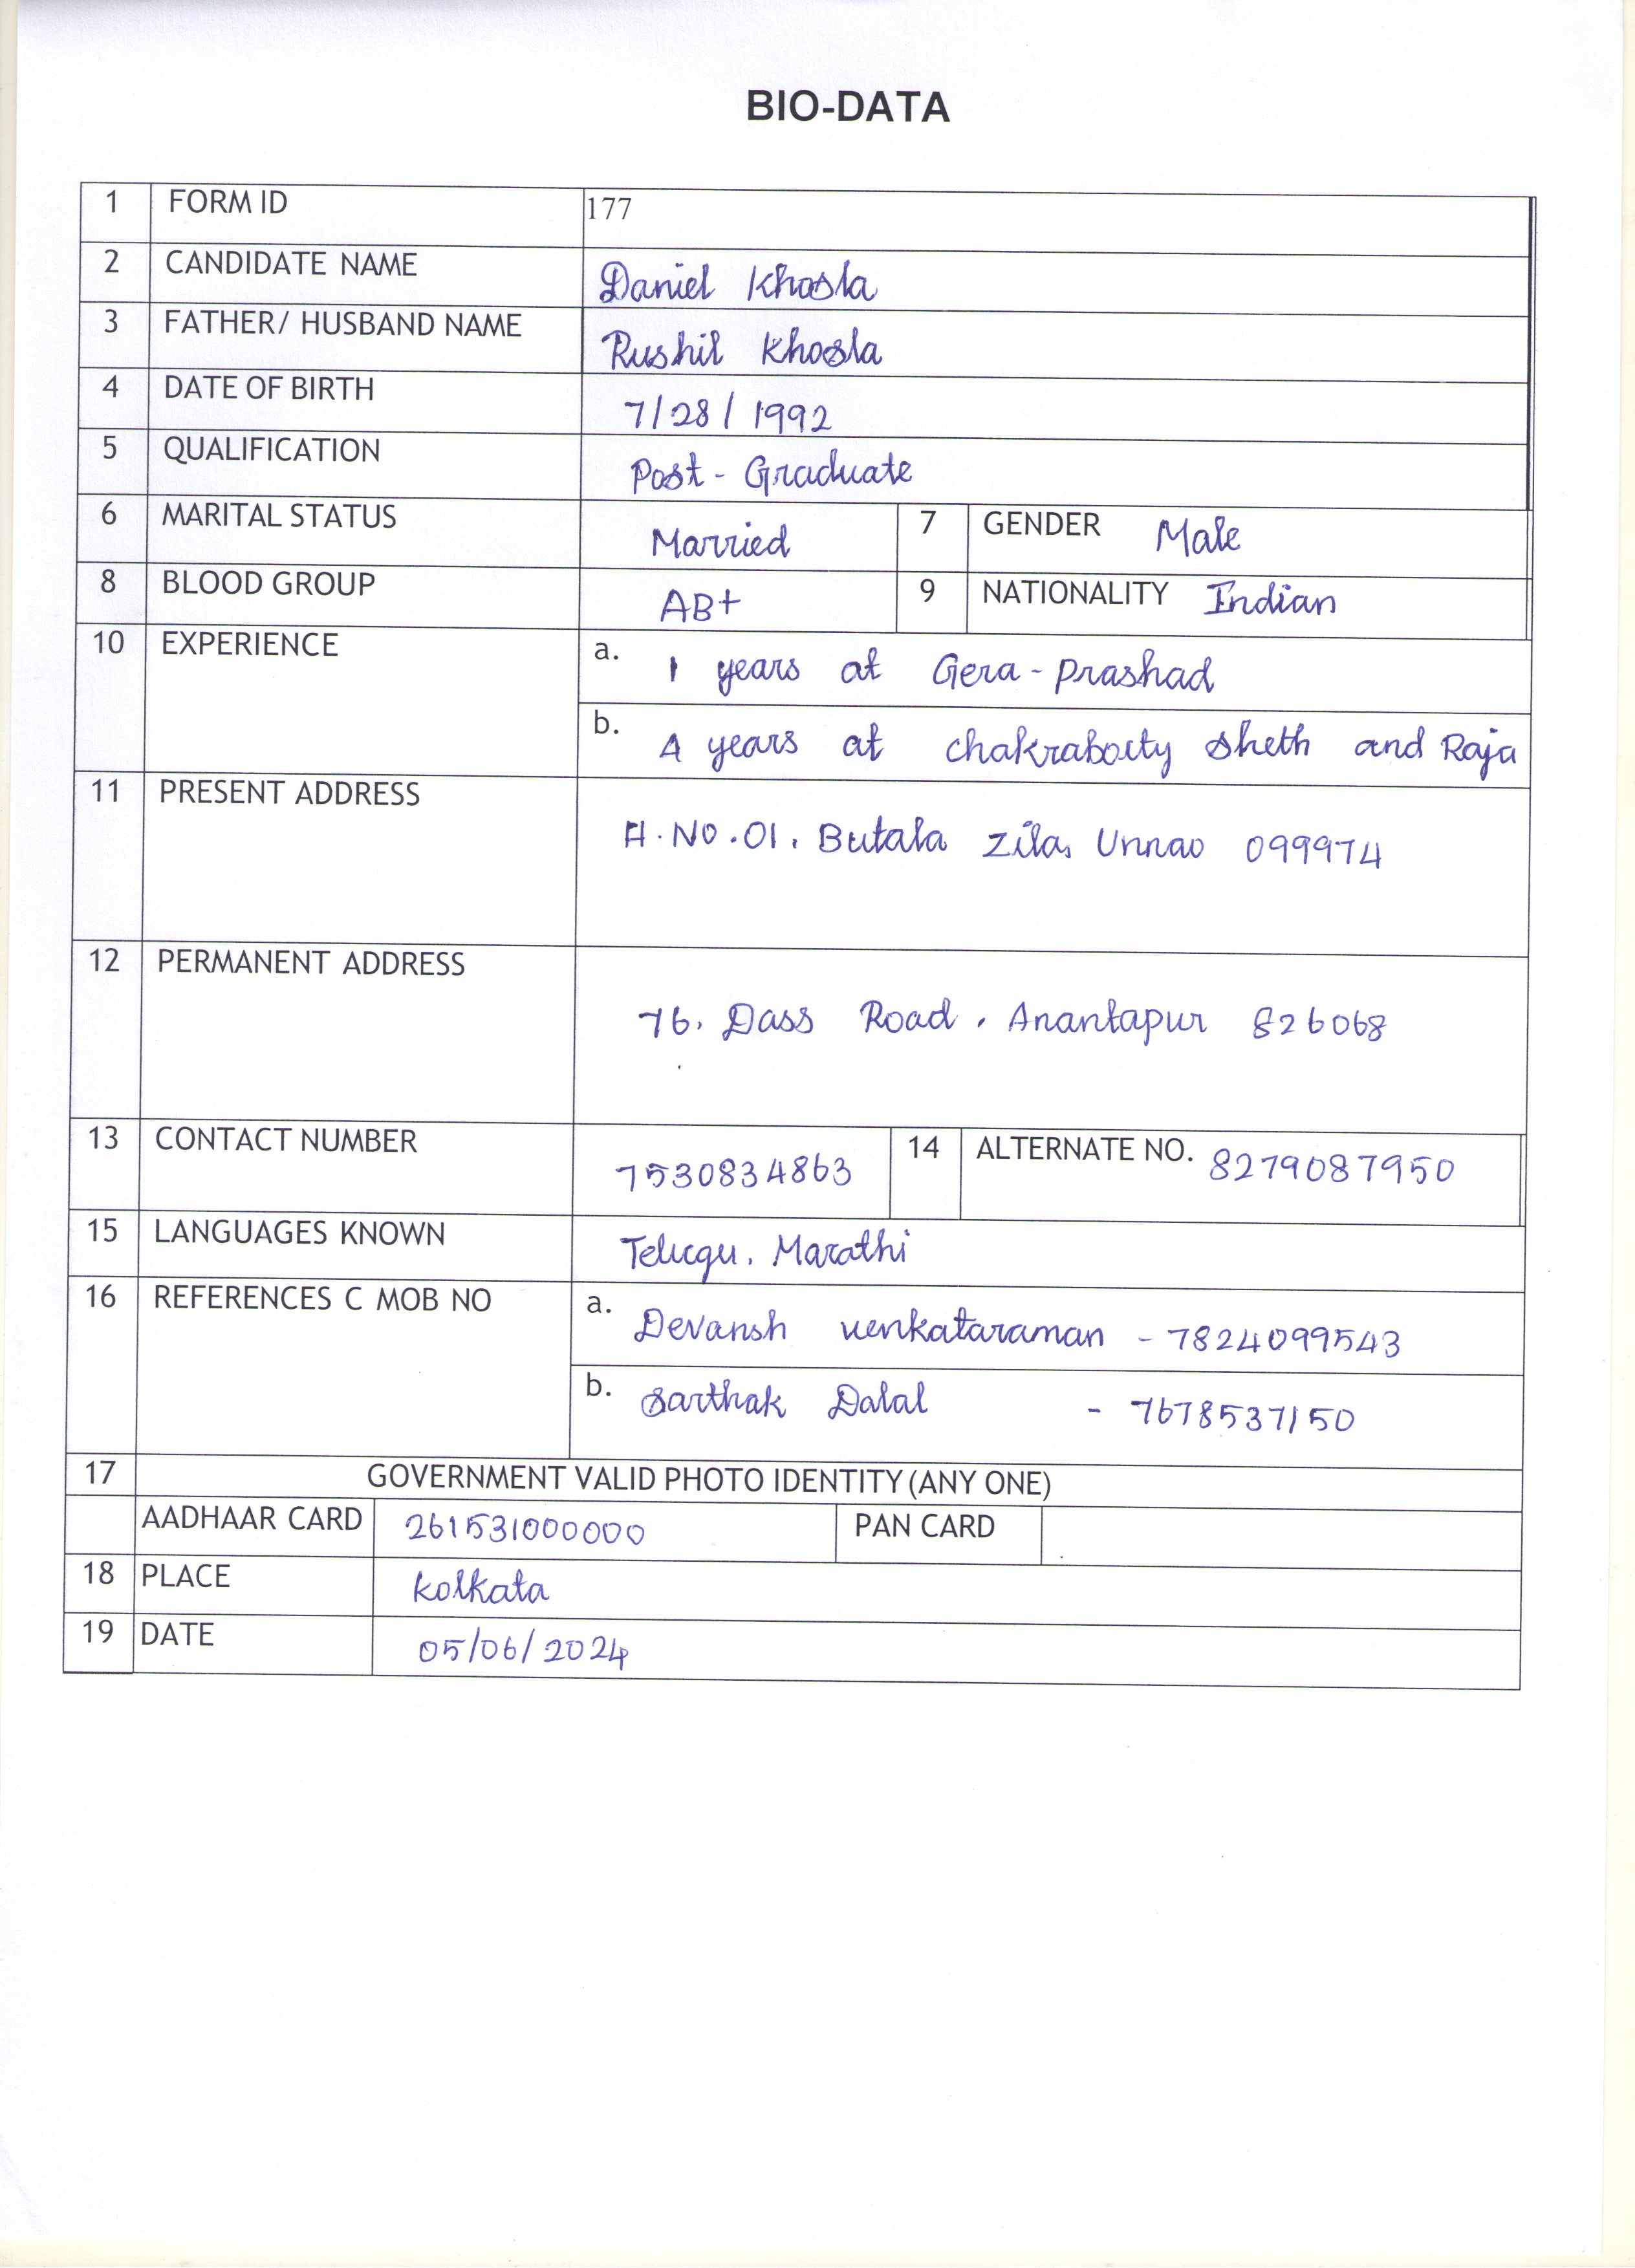 BIO-DATA
1 FORM ID 177
2 CANDIDATE NAME Daniel Khosla
3 FATHER/ HUSBAND NAME Rushil Khosla
4 DATE OF BIRTH 7/28/1992
5 QUALIFICATION Post-Graduate
6 MARITAL STATUS Married 7 GENDER Male
8 BLOOD GROUP AB+ 9 NATIONALITY Indian
10 EXPERIENCE a. 1 years at Gera-Prashad
b. 4 years at chakraborty sheth and Raja
11 PRESENT ADDRESS H.NO.01, Butala Zila, Unnao 099974
12 PERMANENT ADDRESS 76, Dass Road, Anantapur 826068
13 CONTACT NUMBER 7530834863 14 ALTERNATE NO. 8279087950
15 LANGUAGES KNOWN Telugu, Marathi
16 REFERENCES C MOB NO a. Devansh venkataraman - 7824099543
b. Sarthak Dalal - 7678537150
17 GOVERNMENT VALID PHOTO IDENTITY (ANY ONE)
AADHAAR CARD 261531000000 PAN CARD
18 PLACE kolkata
19 DATE 05/06/2024